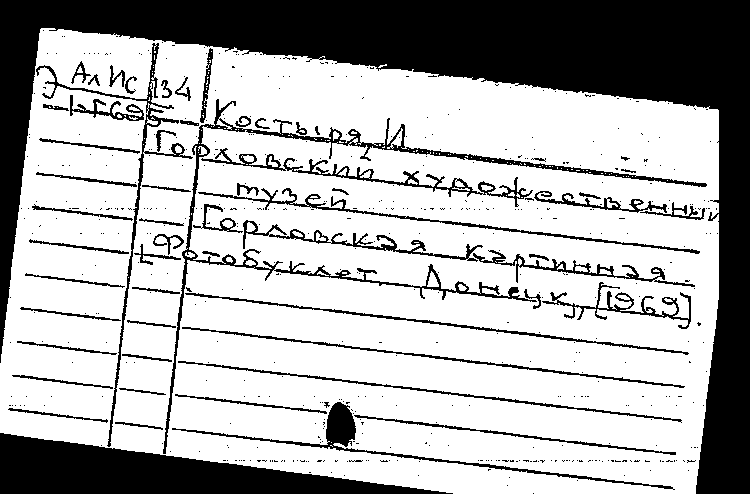 Э АлИС 134
Костыря, И
Горловский художественный
музей
Горловская картинная
Фотобуклет. Донецк, [1969].